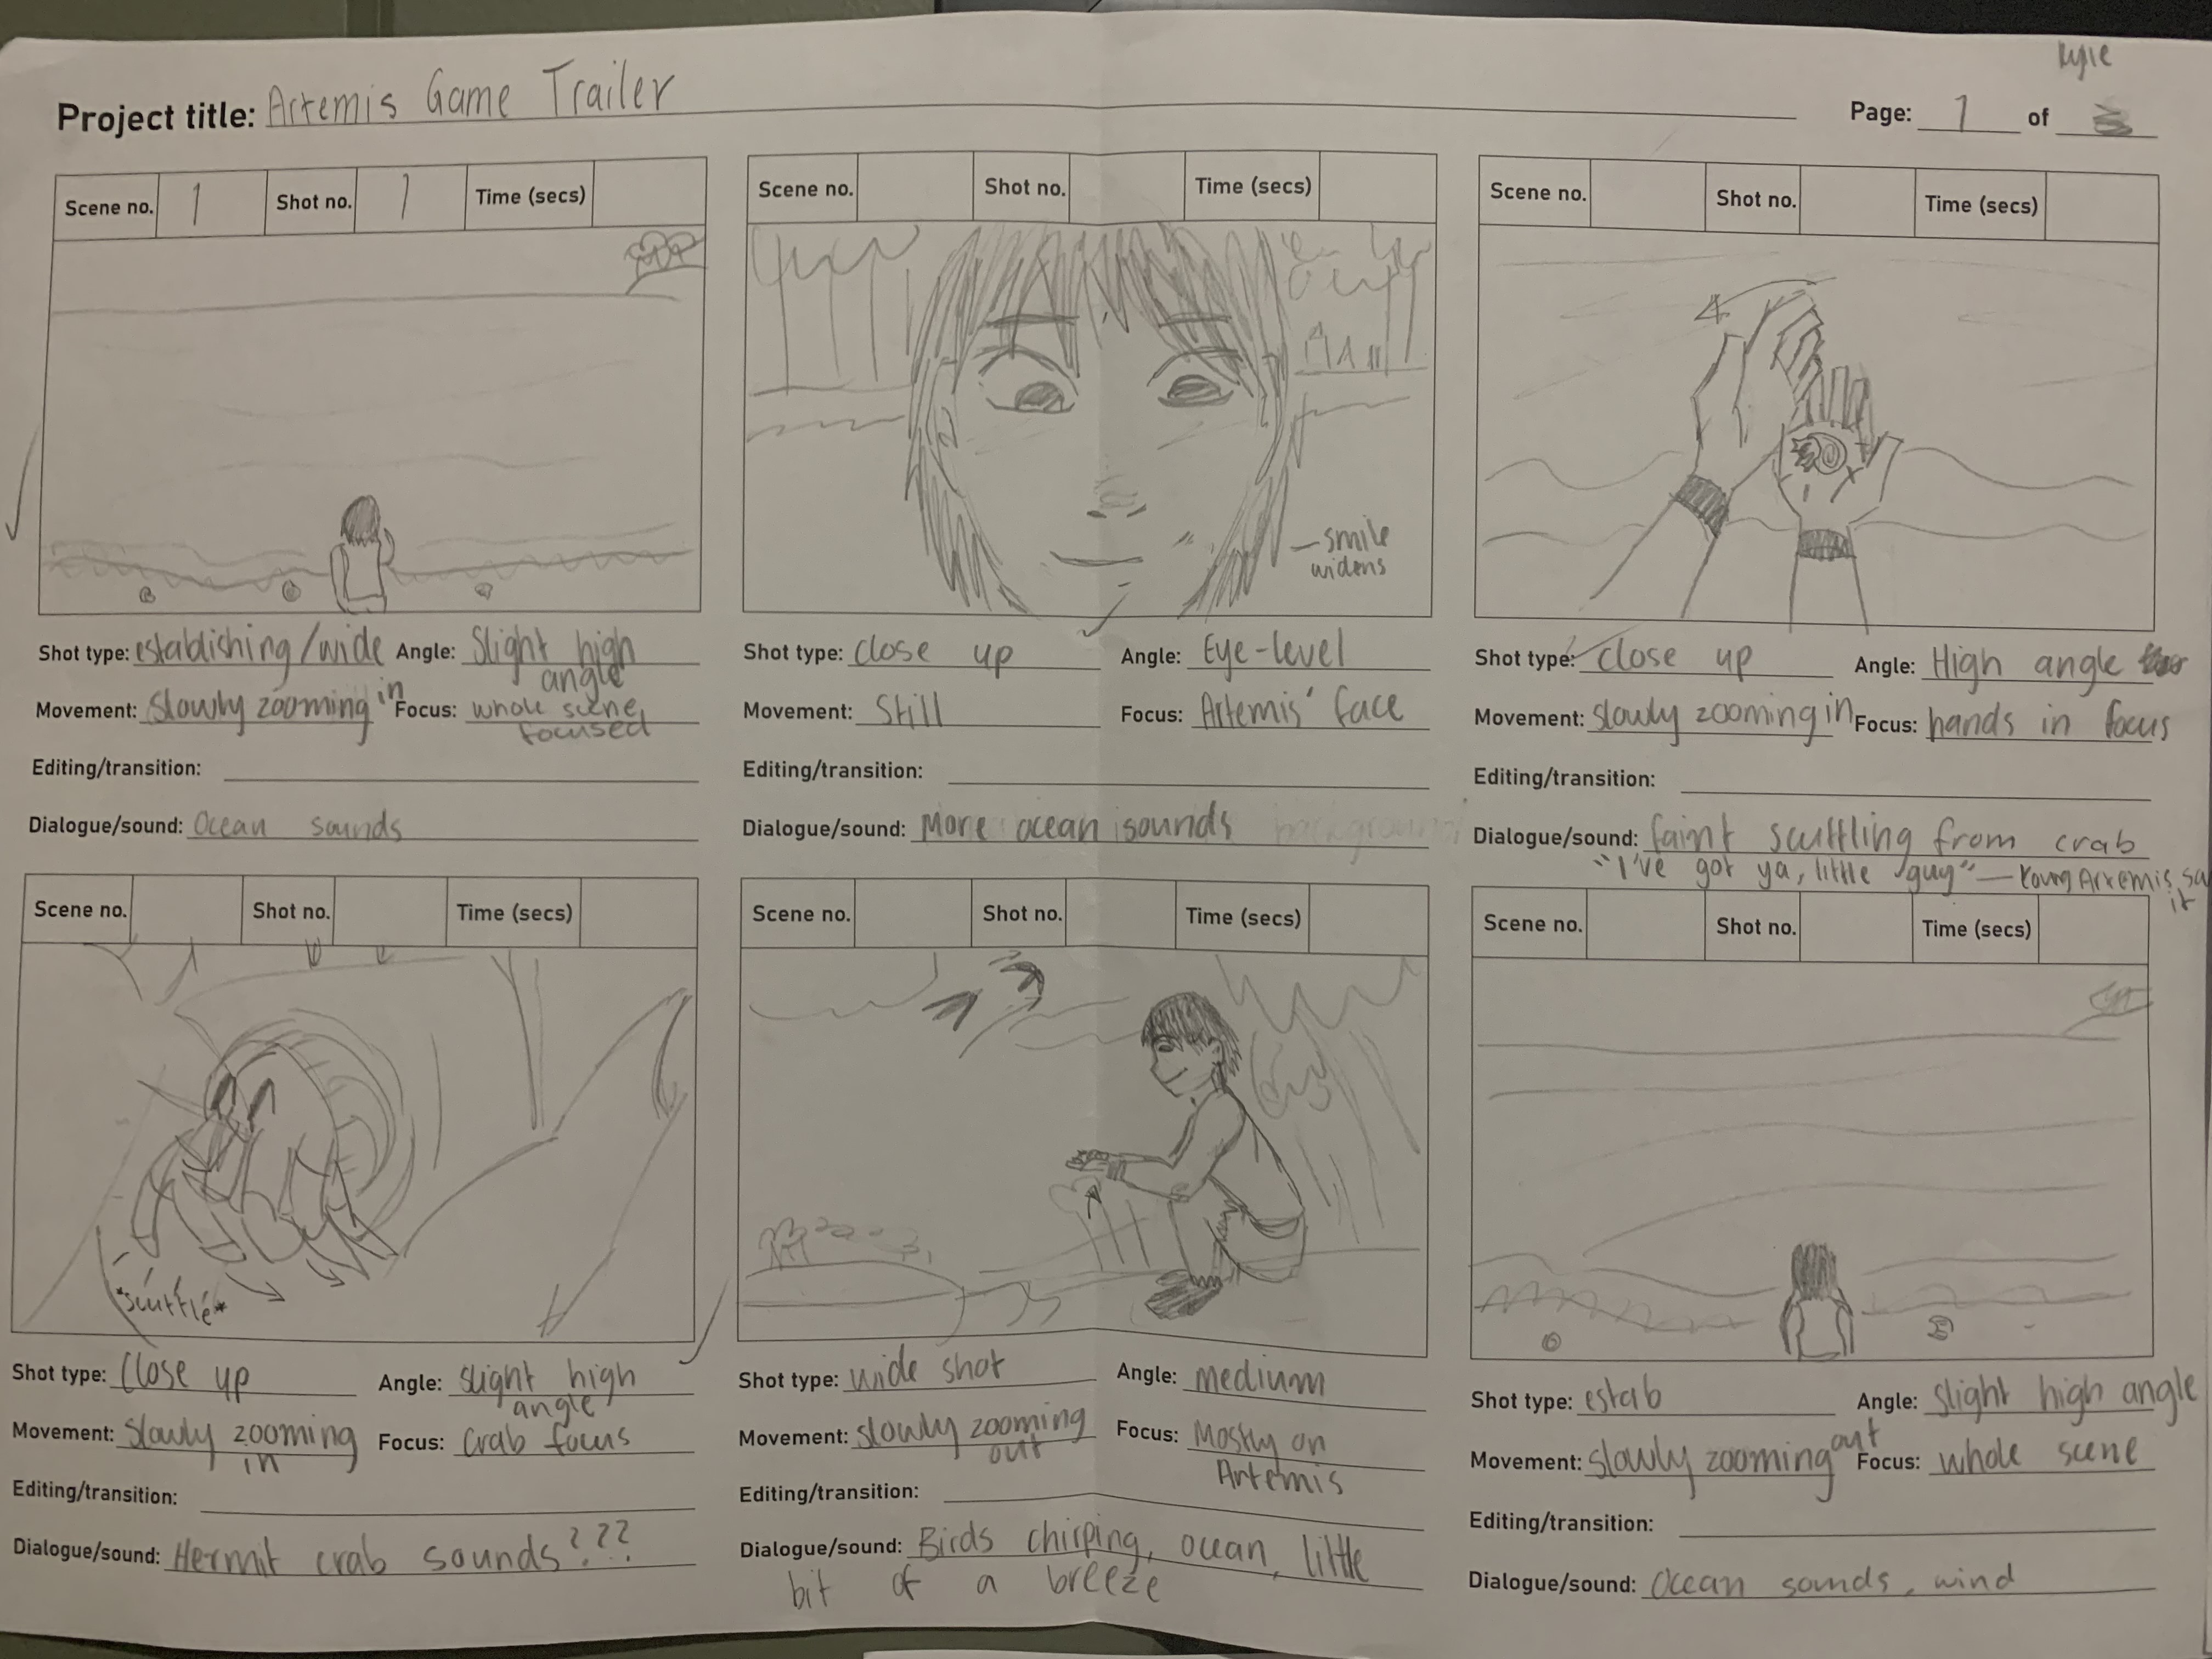 Kylie
Project title: Artemis Game Trailer
Page: 1 of
Scene no. 1 Shot no. 1 Time (secs)
Shot type: establishing/wide Angle: Slight high
angle
Movement: Slowly zooming in Focus: whole scene
focused
Editing/transition:
Dialogue/sound: Ocean sounds
Scene no. Shot no. Time (secs)
– smile
widens
Shot type: close up Angle: Eye-level
Movement: Still Focus: Artemis' face
Editing/transition:
Dialogue/sound: More ocean sounds background
Scene no. Shot no. Time (secs)
Shot type: close up Angle: High angle
Movement: slowly zooming in Focus: hands in focus
Editing/transition:
Dialogue/sound: faint scuttling from crab
"I've got ya, little guy" — Young Artemis sa
it
Scene no. Shot no. Time (secs)
*scuttle*
Shot type: Close up Angle: slight high
angle
Movement: Slowly zooming Focus: crab focus
in
Editing/transition:
Dialogue/sound: Hermit crab sounds???
Scene no. Shot no. Time (secs)
Shot type: wide shot Angle: medium
Movement: slowly zooming Focus: Mostly on
out Artemis
Editing/transition:
Dialogue/sound: Birds chirping, ocean, little
bit of a breeze
Scene no. Shot no. Time (secs)
Shot type: estab Angle: slight high angle
Movement: slowly zooming out Focus: whole scene
Editing/transition:
Dialogue/sound: Ocean sounds, wind